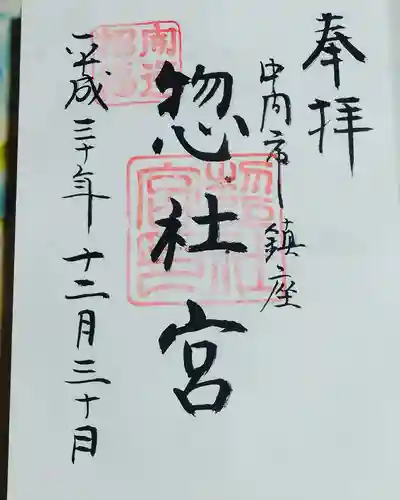 奉拝
中間市 鎮座
惣社宮
平成三十年十二月三十日